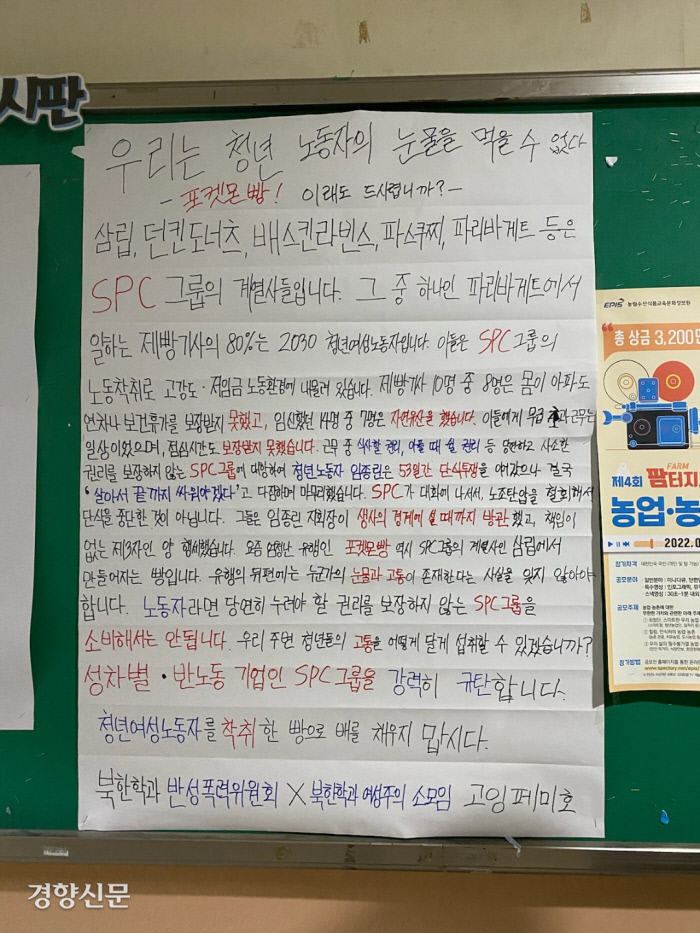 시판
우리는 청년 노동자의 눈물을 먹을 수 없다
- 포켓몬빵! 이래도 드시렵니까? -
삼립, 던킨도너츠, 배스킨라빈스, 파스쿠찌, 파리바게트 등은
SPC 그룹의 계열사들입니다. 그 중 하나인 파리바게트에서
일하는 제빵기사의 80%는 2030 청년여성노동자입니다. 이들은 SPC그룹의
노동착취로 고강도·저임금 노동환경에 내몰려 있습니다. 제빵기사 10명 중 8명은 몸이 아파도
연차나 보건휴가를 보장받지 못했고, 임신했던 14명 중 7명은 자연유산을 했습니다. 이들에게
일상이었으며, 점심시간도 보장받지 못했습니다. 근무 중 식사할 권리, 아플 때 쉴 권리 등 당연하고 사소한
권리를 보장하지 않는 SPC그룹에 대항하여 청년노동자 임종린은 53일간 단식투쟁을 이어갔으나 결국
'살아서 끝까지 싸워야겠다'고 다짐하며 마무리했습니다. SPC가 대화에 나서서, 노조탄압을 철회해서
단식을 중단한 것이 아닙니다. 그들은 임종린 지회장이 생사의 경계에 설 때까지 방관했고, 책임이
없는 제3자인 양 행세했습니다. 요즘 엄청난 유행인 포켓몬빵 역시 SPC그룹의 계열사인 삼립에서
만들어지는 빵입니다. 유행의 뒤편에는 누군가의 눈물과 고통이 존재한다는 사실을 잊지 않아야
합니다. 노동자라면 당연히 누려야 할 권리를 보장하지 않는 SPC그룹을
소비해서는 안됩니다. 우리 주변 청년들의 고통을 어떻게 달게 섭취할 수 있겠습니까?
성차별·반노동 기업인 SPC그룹을 강력히 규탄합니다.
청년여성노동자를 착취한 빵으로 배를 채우지 맙시다.
북한학과 반성폭력위원회 X 북한학과 여성주의 소모임 고잉페미호
EPIS 농림수산식품교육문화정보원
"총 상금 3,200만
FARM
제4회 팜터지
농업·농
2022.0
참가자격
공모분야
공모주제
참가방법
경향신문